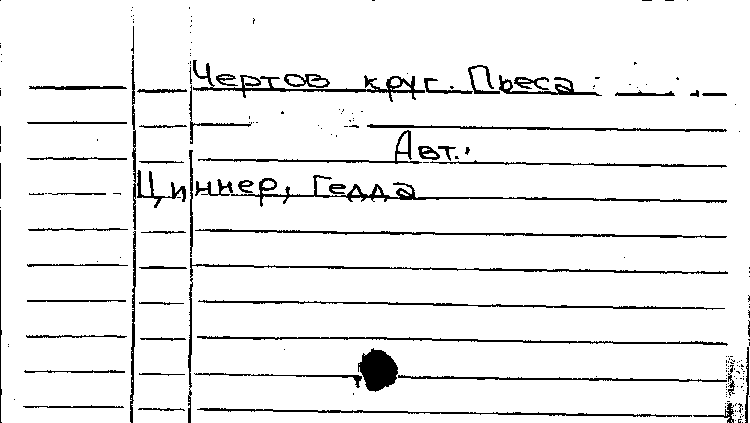 Чертов круг. Пьеса
Авт.:
Циннер, Гедда